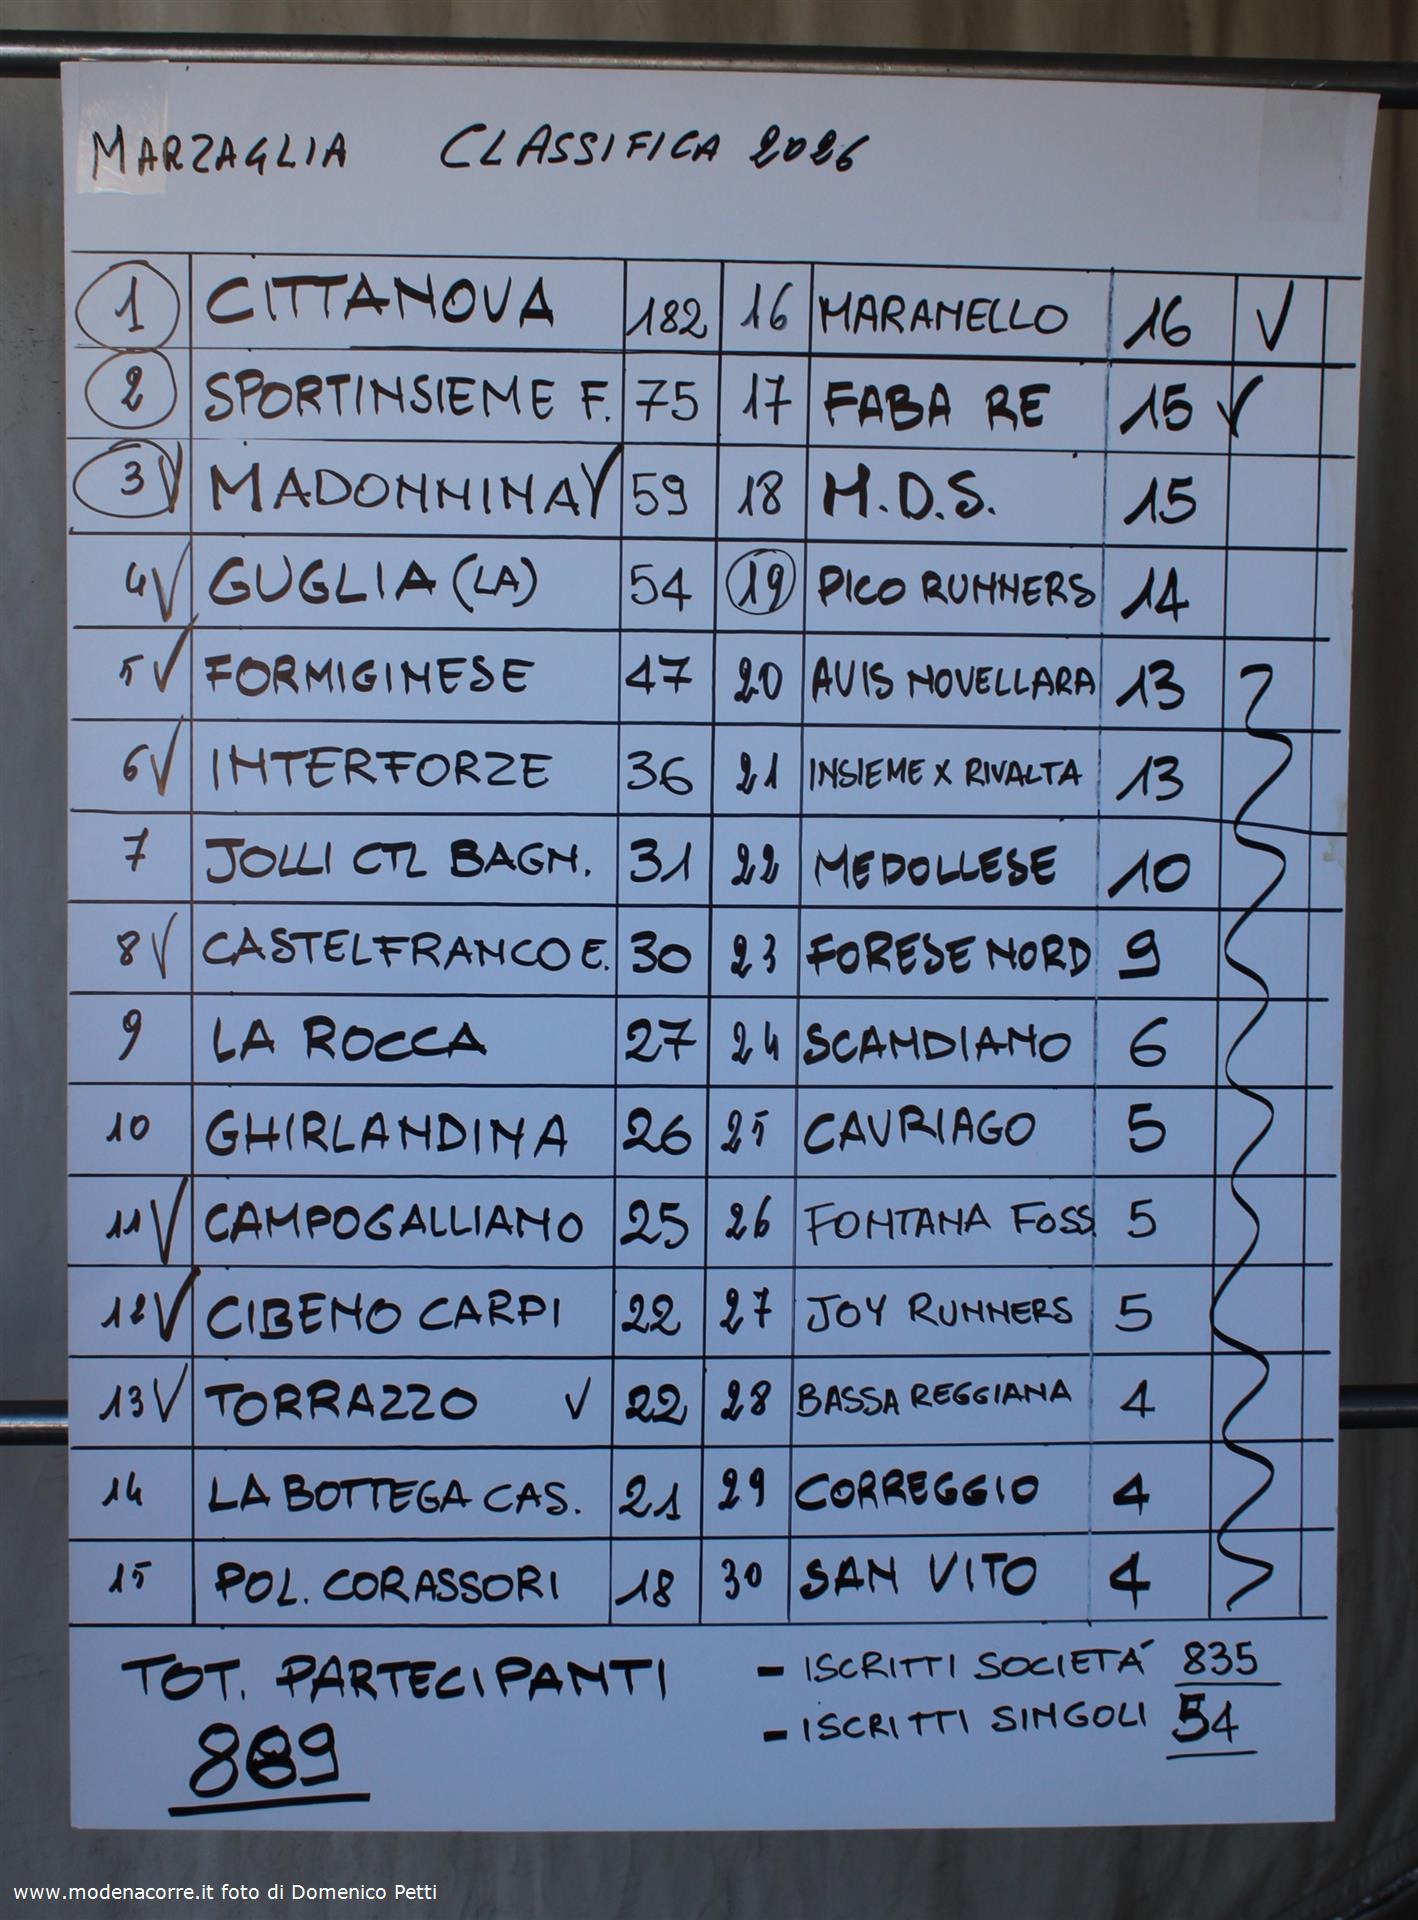 MARZAGLIA CLASSIFICA 2026
1 CITTANOVA 182 16 MARANELLO 16 √
2 SPORTINSIEME F. 75 17 FABA RE 15 √
3 √ MADONNINA √ 59 18 M.D.S. 15
4 √ GUGLIA (LA) 54 19 PICO RUNNERS 14
5 √ FORMIGINESE 47 20 AVIS NOVELLARA 13
6 √ INTERFORZE 36 21 INSIEME X RIVALTA 13
7 JOLLI CTL BAGN. 31 22 MEDOLLESE 10
8 √ CASTELFRANCO E. 30 23 FORESE NORD 9
9 LA ROCCA 27 24 SCANDIANO 6
10 GHIRLANDINA 26 25 CAVRIAGO 5
11 √ CAMPOGALLIANO 25 26 FONTANA FOSS 5
12 √ CIBENO CARPI 22 27 JOY RUNNERS 5
13 √ TORRAZZO √ 22 28 BASSA REGGIANA 4
14 LA BOTTEGA CAS. 21 29 CORREGGIO 4
15 POL. CORASSORI 18 30 SAN VITO 4
TOT. PARTECIPANTI
889
- ISCRITTI SOCIETÁ 835
- ISCRITTI SINGOLI 54
www.modenacorre.it foto di Domenico Petti